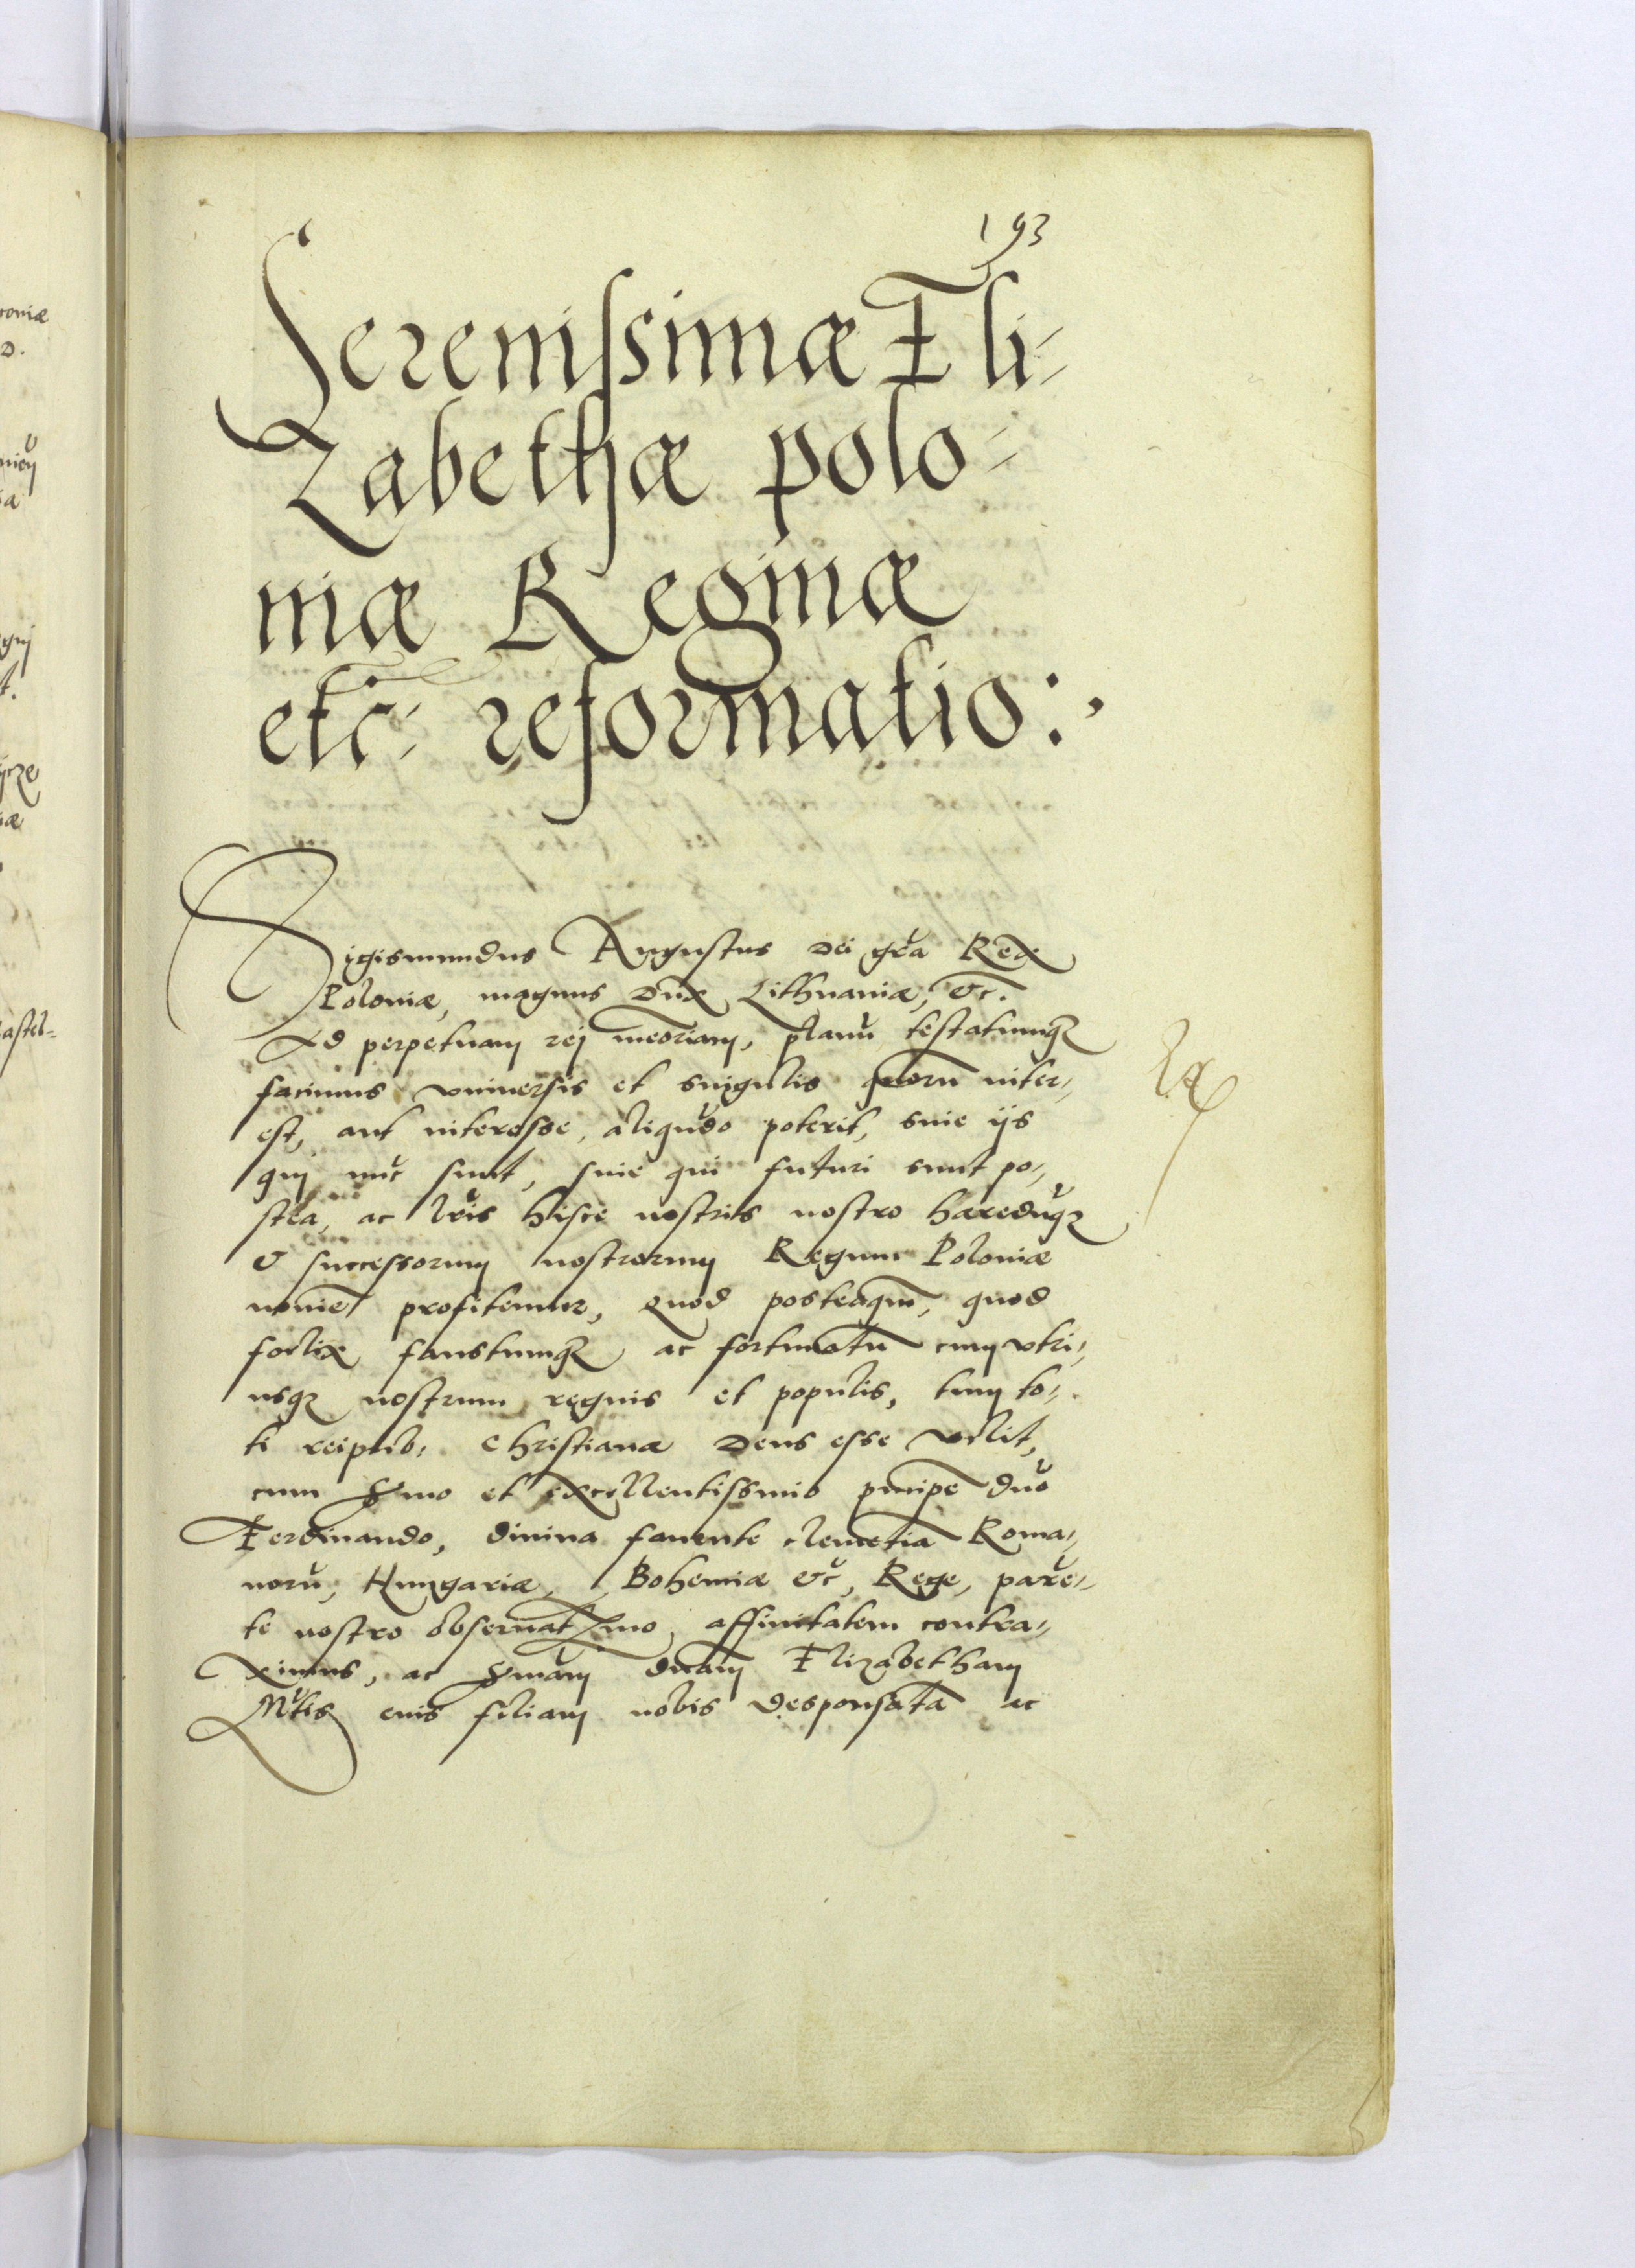 193
Serenissimæ Eli-
zabethæ polo-
niæ Reginæ
etc: reformatio:
Sigismundus Augustus Dei gr̃a Rex
Poloniæ, magnus Dux Lithuaniæ, &c.
Ad perpetuam rej meoriam, planũ testatumqȝ
facimus vniuersis et singulis quorũ inter-
est, aut interesse, aliqũdo poterit, siue ijs
qui nũc sunt, siue qui futuri sunt po-
stea, ac lr̃is hisce nostris nostro hæredũqȝ
& successorum nostrorum Regum Poloniæ
nomie profitemur, Quod posteaqm̃, quod
foelix faustumqȝ ac fortunatũ cum vtri-
usqȝ nostrum regnis et populis, tum to-
ti reipub: Christianæ Deus esse velit,
cum Sermo et excellentissimo principe dño
Ferdinando, diuina fauente clemetia Roma-
norũ, Hungariæ, Bohemiæ &c, Rege, parẽ-
te nostro obseruatismo, affinitatem contra-
ximus, ac Sermam dnam Elizabetham
Mtis eius filiam nobis desponsatã ac